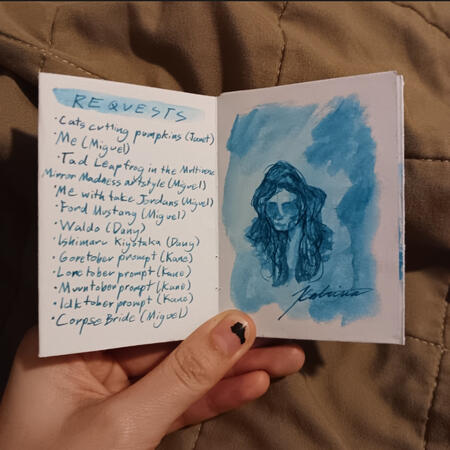 REQUESTS
· Cats cutting pumpkins (Janet)
· Me (Miguel)
· Tad Leapfrog in the Multiverse
Mirror Madness artstyle (Miguel)
· Me with fake Jordans (Miguel)
· Ford Mustang (Miguel)
· Waldo (Dany)
· Ishimaru Kiyotaka (Dany)
· Goretober prompt (Kane)
· Loretober prompt (Kane)
· Muuntober prompt (Kane)
· Idktober prompt (Kane)
· Corpse Bride (Miguel)